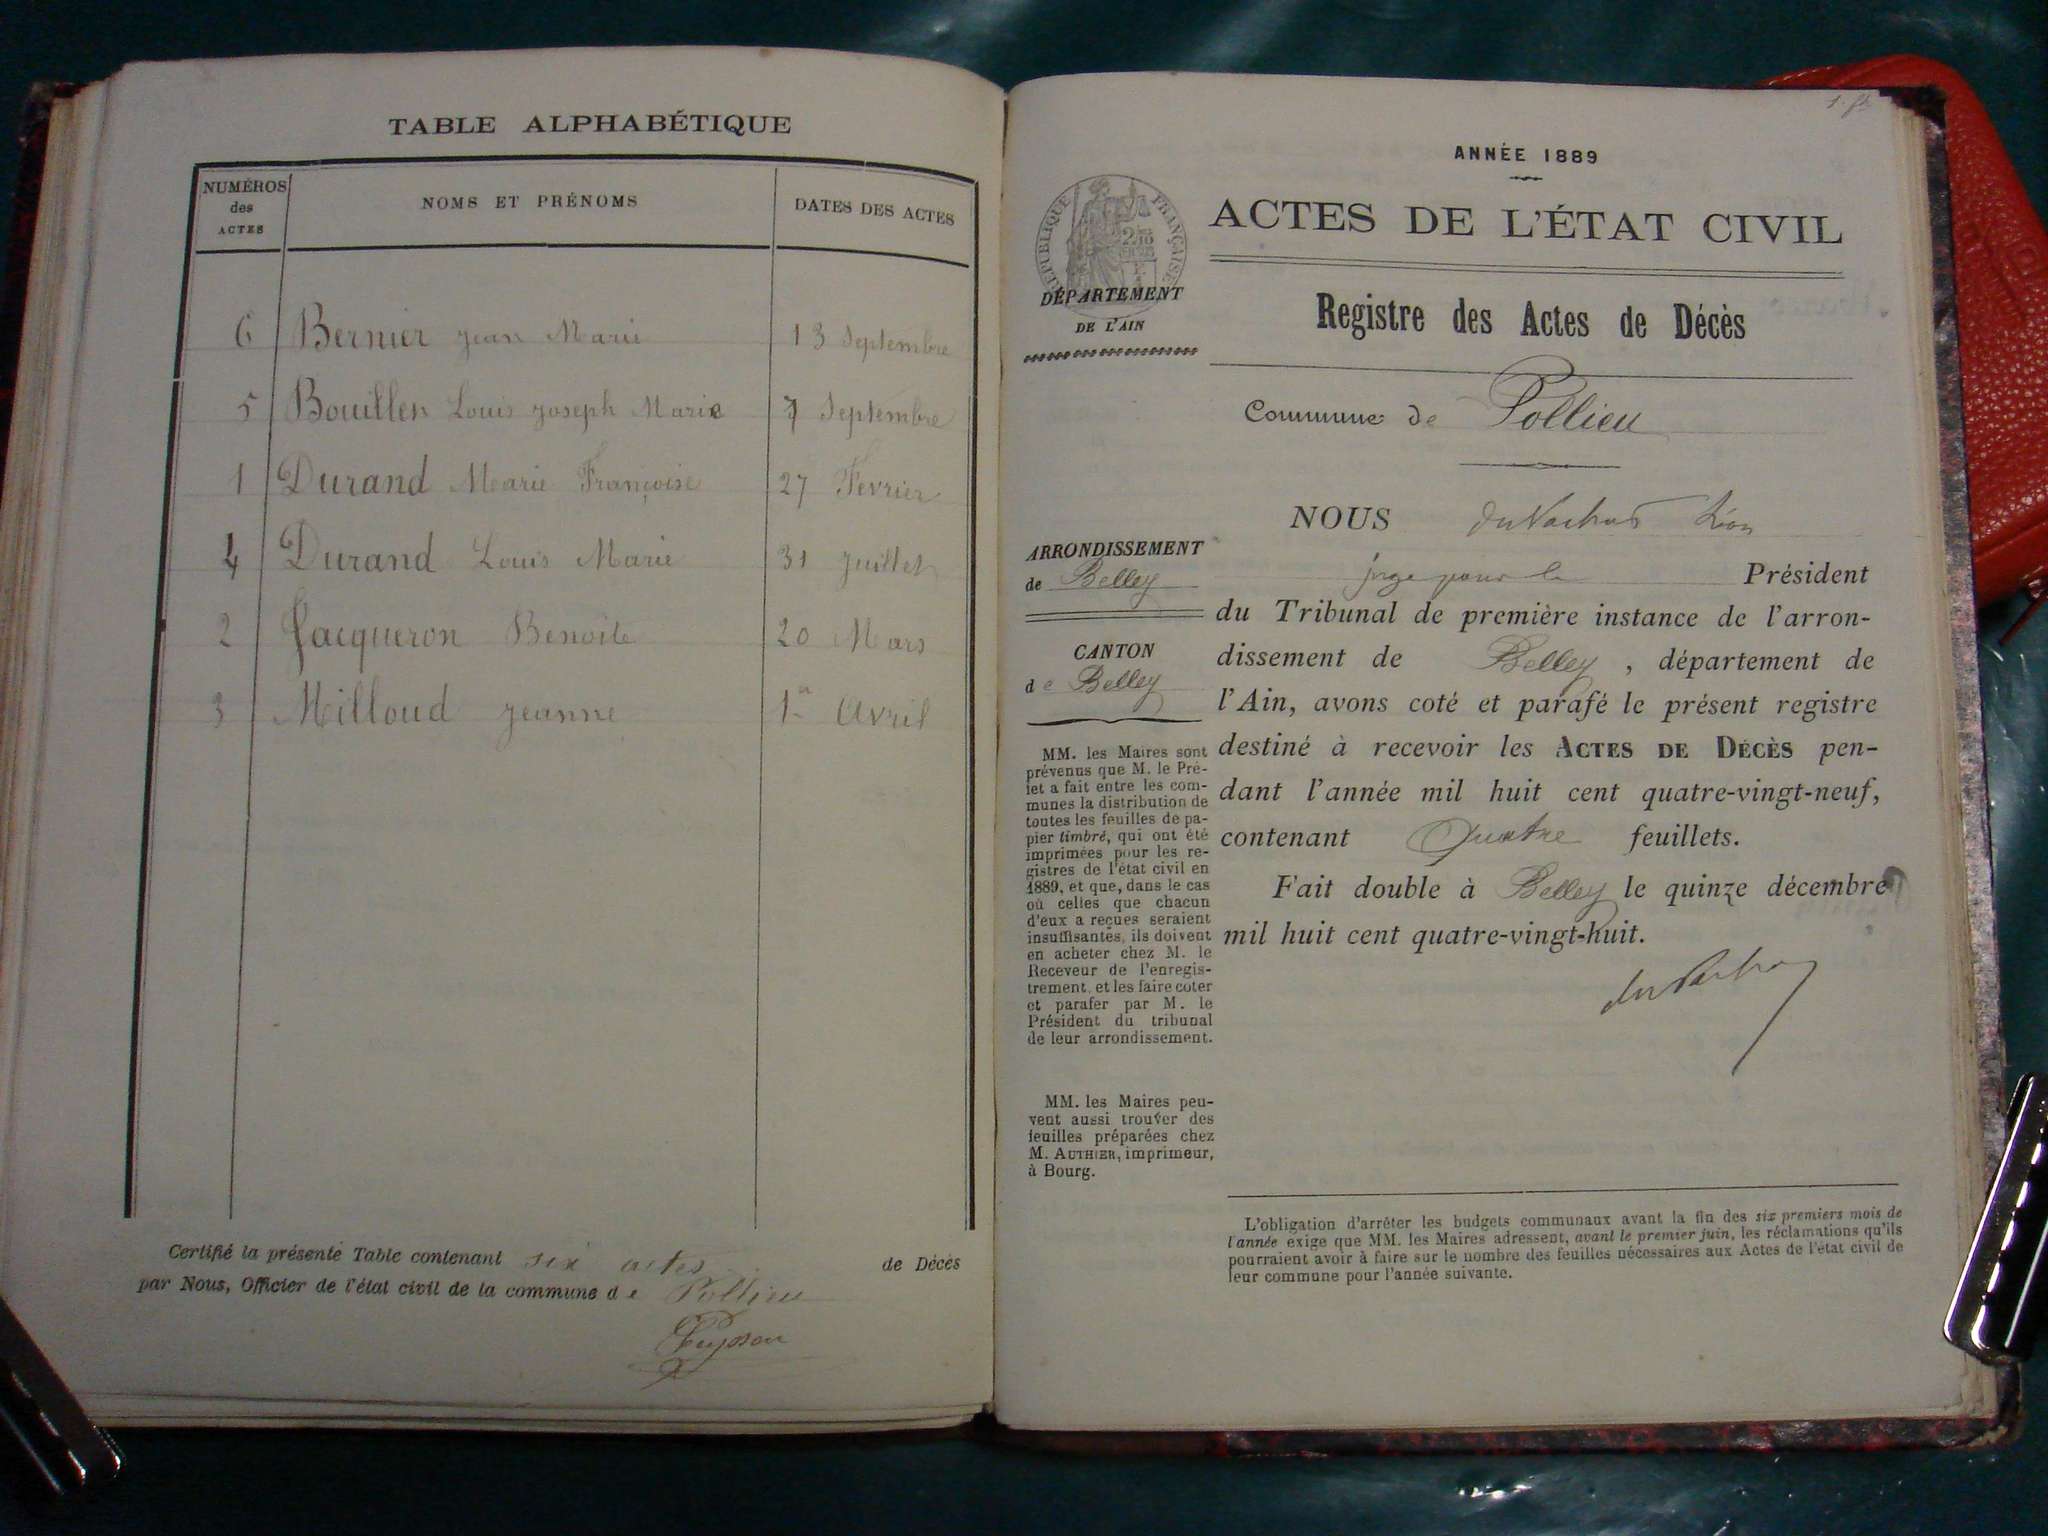 TABLE ALPHABÉTIQUE
NUMÉROS des ACTES
NOMS ET PRÉNOMS
DATES DES ACTES
6 Bernier jean Marie 13 Septembre
5 Bouillen Louis joseph Marie 7 Septembre
1 Durand Marie Françoise 27 Fevrier
4 Durand Louis Marie 31 juillet
2 Jacqueron Benoite 20 Mars
3 Milloud jeanne 1er Avril
Certifié la présente Table contenant six actes de Décès
par Nous, Officier de l'état civil de la commune de Pollieu
ANNÉE 1889
RÉPUBLIQUE FRANÇAISE
ACTES DE L'ÉTAT CIVIL
DÉPARTEMENT
DE L'AIN
Registre des Actes de Décès
Commune de Pollieu
ARRONDISSEMENT
de Belley
CANTON
de Belley
MM. les Maires sont
prévenus que M. le Pré-
fet a fait entre les com-
munes la distribution de
toutes les feuilles de pa-
pier timbré, qui ont été
imprimées pour les re-
gistres de l'état civil en
1889, et que, dans le cas
où celles que chacun
d'eux a reçues seraient
insuffisantes, ils doivent
en acheter chez M. le
Receveur de l'enregis-
trement, et les faire coter
et parafer par M. le
Président du tribunal
de leur arrondissement.
MM. les Maires peu-
vent aussi trouver des
feuilles préparées chez
M. AUTHIER, imprimeur,
à Bourg.
NOUS Léon
juge pour le Président
du Tribunal de première instance de l'arron-
dissement de Belley, département de
l'Ain, avons coté et parafé le présent registre
destiné à recevoir les ACTES DE DÉCÈS pen-
dant l'année mil huit cent quatre-vingt-neuf,
contenant Quatre feuillets.
Fait double à Belley le quinze décembre
mil huit cent quatre-vingt-huit.
L'obligation d'arrêter les budgets communaux avant la fin des six premiers mois de
l'année exige que MM. les Maires adressent, avant le premier juin, les réclamations qu'ils
pourraient avoir à faire sur le nombre des feuilles nécessaires aux Actes de l'état civil de
leur commune pour l'année suivante.